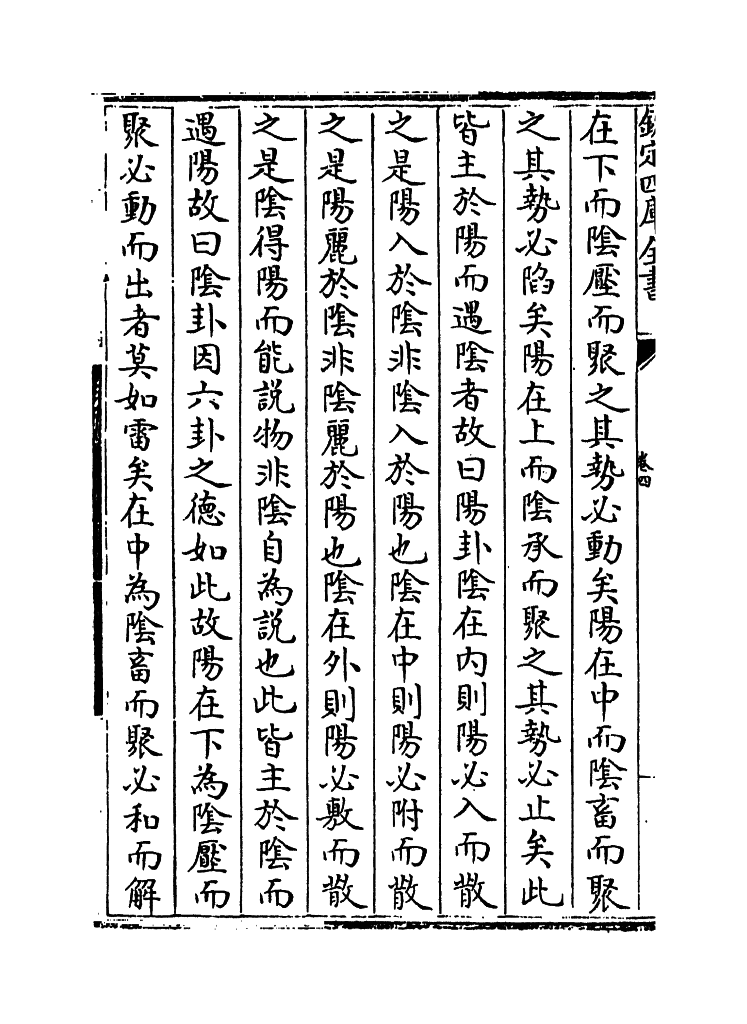 欽定四庫全書
卷四
在下而陰壓而聚之其勢必動矣陽在中而陰畜而聚
之其勢必陷矣陽在上而陰承而聚之其勢必止矣此
皆主於陽而遇陰者故曰陽卦陰在内則陽必入而散
之是陽入於陰非陰入於陽也陰在中則陽必附而散
之是陽麗於陰非陰麗於陽也陰在外則陽必敷而散
之是陰得陽而能説物非陰自為説也此皆主於陰而
遇陽故曰陰卦因六卦之德如此故陽在下為陰壓而
聚必動而出者莫如雷矣在中為陰畜而聚必和而解